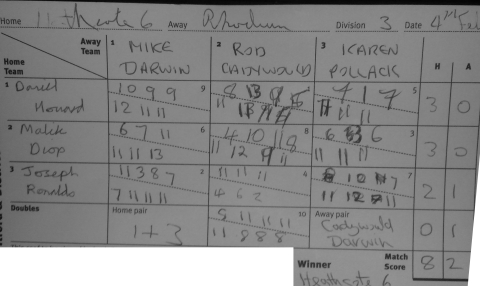 Home Heathcote 6 Away Division 3 Date
Away Team 1 MIKE DARWIN 2 ROD CADYWOULD 3 KAREN POLLACK H A
Home Team
1 Daniel Howard 9 5 3 0
10 9 9 7 1 7
12 11 11 11 11
2 Malik Diop 6 8 3 0
6 7 11 4 10 11 8 6 6
11 11 13 11 12 11 11 11
3 Joseph Ronaldo 2 4 7 2 1
11 3 8 7 11 11 11 10 7
7 11 11 11 4 6 2 11 12 11
Doubles Home pair 1+3 10 Away pair Cadywould Darwin 0 1
9 11 11 11
11 8 8 8
Winner Heathcote 6 Match Score 8 2